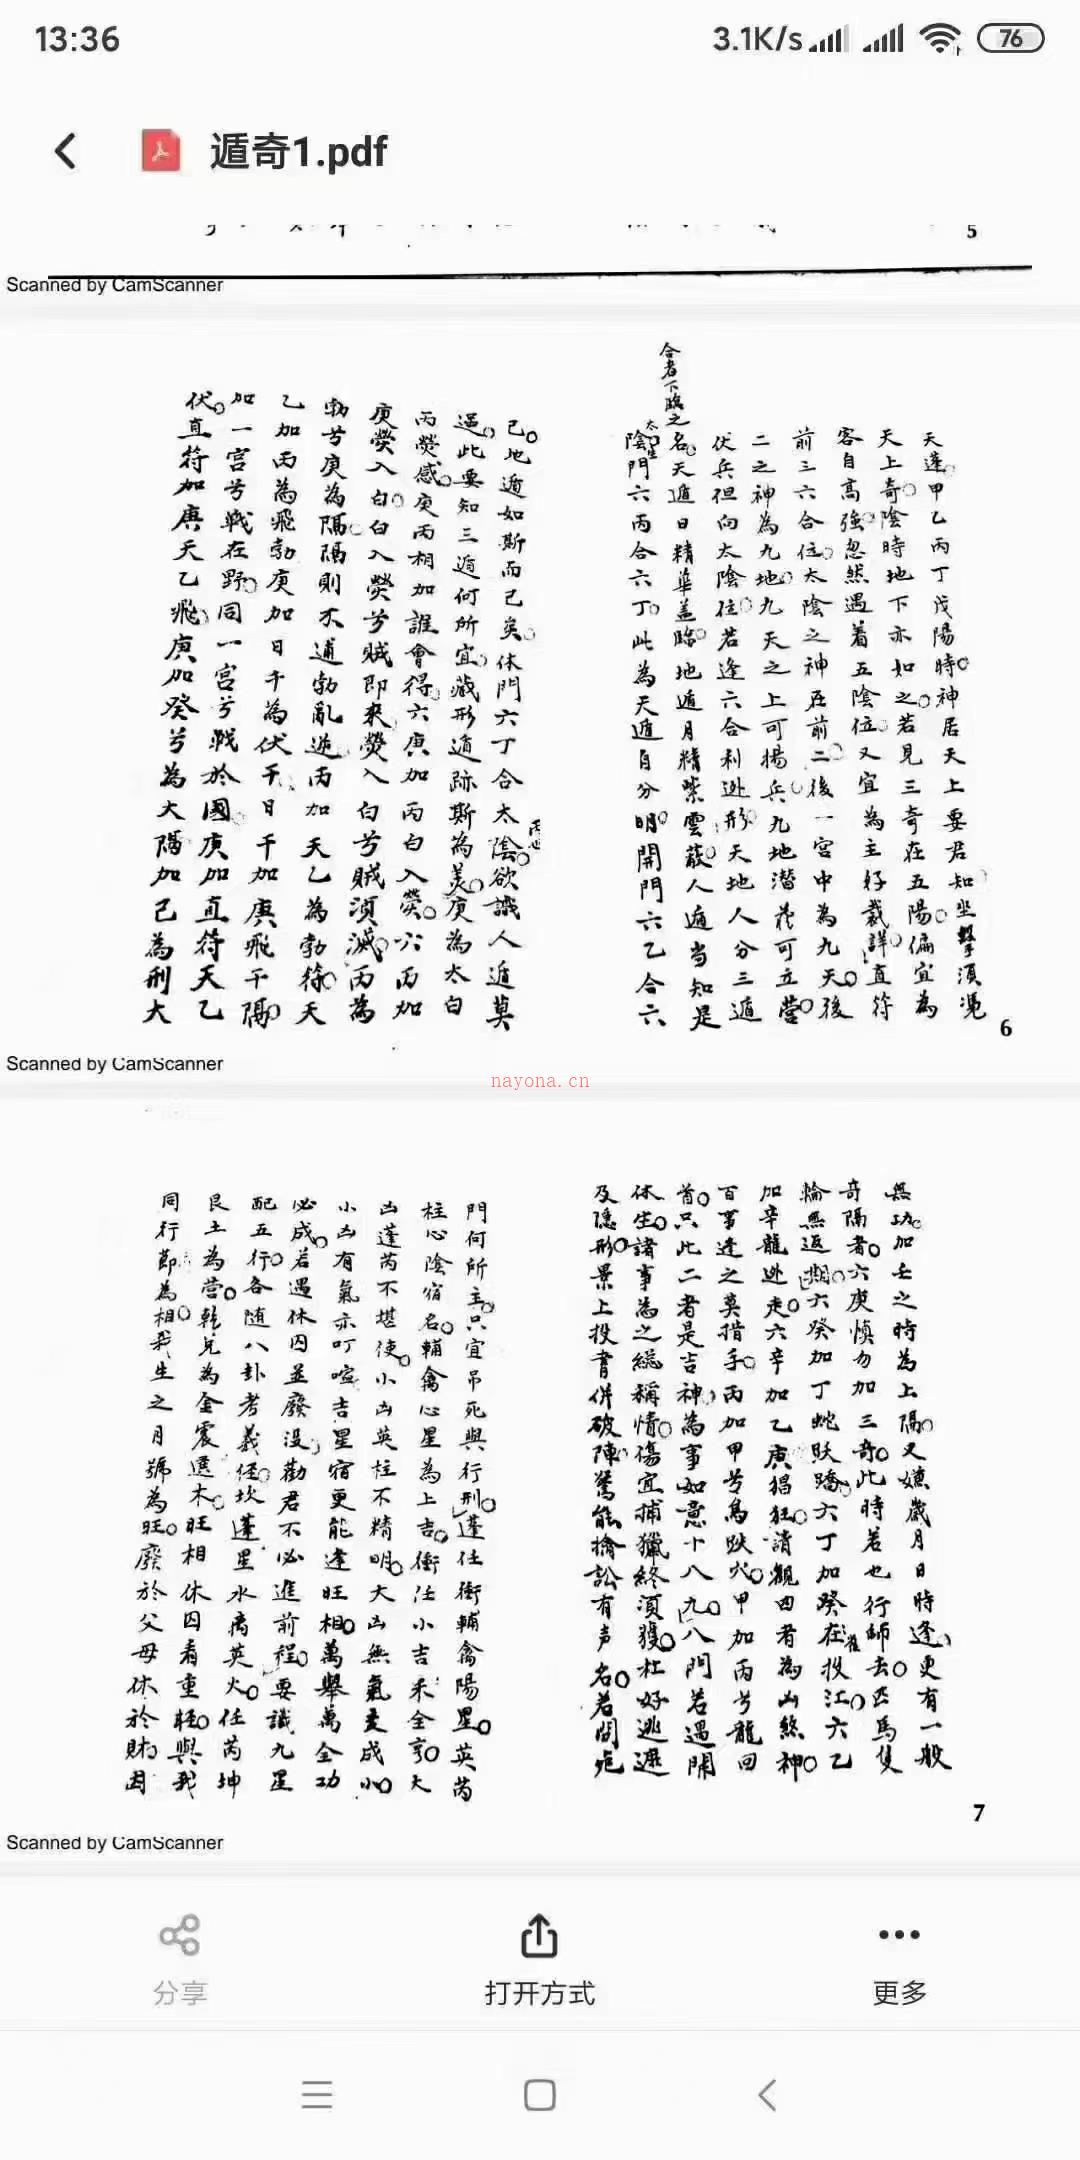 13:36
3.1K/s
76
遁奇1.pdf
5
Scanned by CamScanner
天蓬甲乙丙丁戊陽時神居天上要君知坐擊須馮
天上奇陰時地下亦如之若見三奇在五陽偏宜為
客自高強忽然遇着五陰位又宜為主好裁詳直符
前三六合位太陰之神在前二後一宮中為九天後
二之神為九地九天之上可揚兵九地潛藏可立營
伏兵但向太陰位若逢六合利逃形天地人分三遁
合者下臨之
名天遁日精華蓋臨地遁月精紫雲蔽人遁当知是
陰門六丙合六丁此為天遁自分明開門六乙合六
6
己地遁如斯而已矣休門六丁合太陰欲識人遁莫
過此要知三遁何所宜藏形遁跡斯為美庚為太白
丙熒惑庚丙相加誰會得六庚加丙白入熒六丙加
庚熒入白白入熒兮賊即來熒入白兮賊須滅丙為
勃兮庚為隔隔則不逋勃亂逆丙加天乙為勃符天
乙加丙為飛勃庚加日干為伏干日干加庚飛干隔
加一宮兮戰在野同一宮兮戰於國庚加直符天乙
伏直符加庚天乙飛庚加癸兮為大隔加己為刑大
Scanned by CamScanner
nayona.cn
無功加壬之時為上隔又嫌歲月日時逢更有一般
奇隔者六庚慎勿加三奇此時若也行師去匹馬隻
輪無返期六癸加丁蛇妖蹻六丁加癸雀投江六乙
加辛龍逃走六辛加乙虎猖狂請觀四者為凶煞神
百事逢之莫措手丙加甲兮鳥跌穴甲加丙兮龍回
首只此二者是吉神為事如意十八九八門若遇開
休生諸事為之總稱情傷宜捕獵終須獲杜好逃遮
及隱形景上投書併破陣驚能擒訟有声名若問死
7
門何所主只宜吊死與行刑蓬任衝輔禽陽星英芮
柱心陰宿名輔禽心星為上吉衝任小吉未全亨大
凶蓬芮不堪使小凶英柱不精明大凶無氣变成小
小凶有氣亦叮喧吉星宿更能逢旺相萬舉萬全功
必成若遇休囚並廢沒勸君不必進前程要識九星
配五行各随八卦考義経坎蓬星水离英火任芮坤
艮土為营乾兌為金震選木旺相休囚看重輕與我
同行節為相我生之月號為旺廢於父母休於財囚
Scanned by CamScanner
分享
打开方式
更多